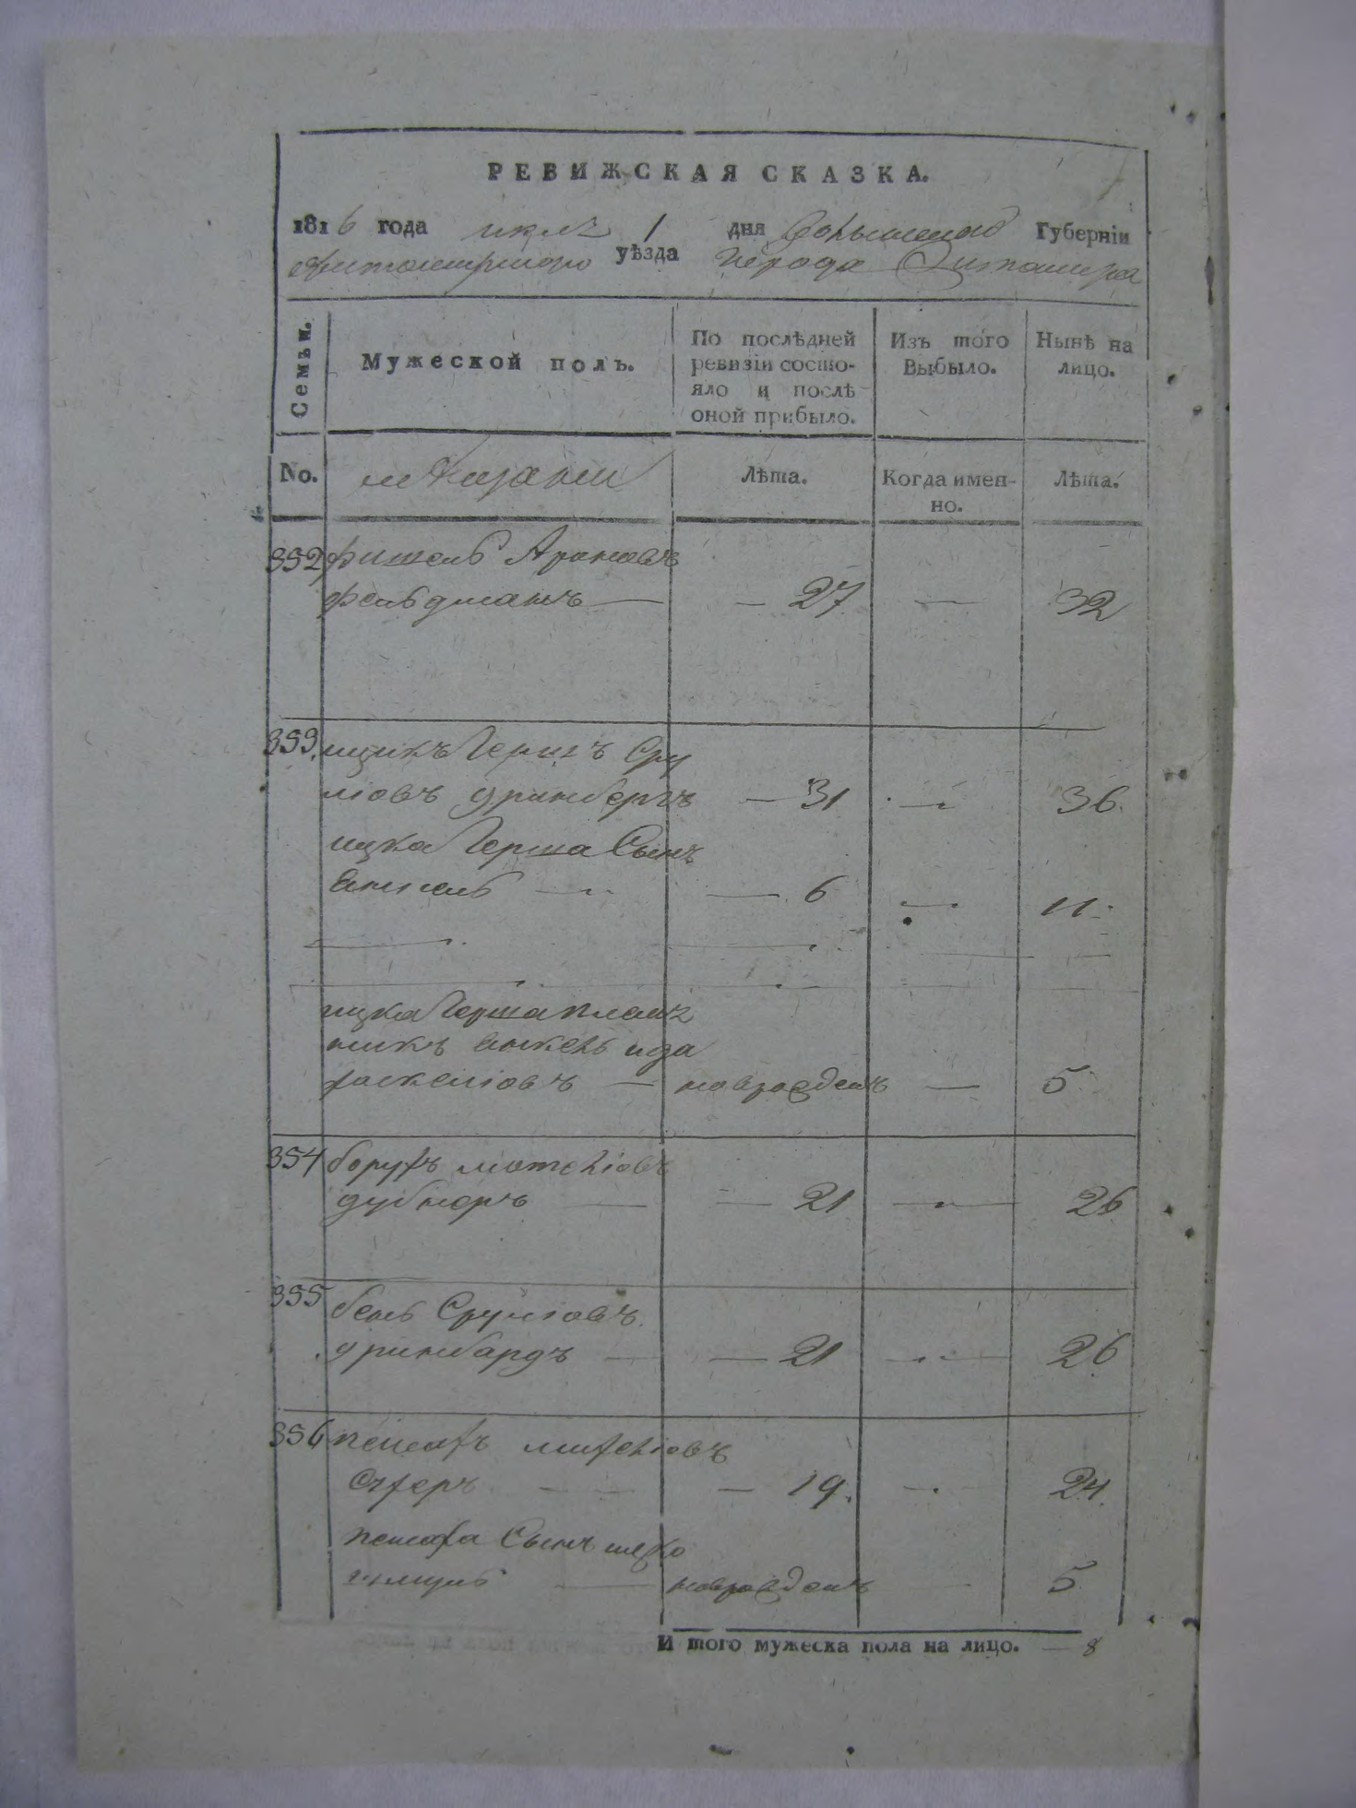 РЕВИЖСКАЯ СКАЗКА.
1816 года июля 1 дня Волынской Губерніи
Житомирскаго уѣзда города Житомира
Семьи. Мужеской полъ. По послѣдней ревизіи состояло и послѣ оной прибыло. Изъ того выбыло. Нынѣ на лицо.
No. мещане Лѣта. Когда именно. Лѣта.
352 фишель Ароновъ
фельдманъ — — 27 — 32
353. ицикъ Гершъ Сру
ліовъ гринбергъ — 31 — 36.
ицка Герша Сынъ
— — 6 — 11
ицка Герша племя
никъ
— новрожденъ — 5
354 борухъ
дубнеръ — — 21 — 26
355 бень Сруліовъ
гринбаргъ — — 21 — 26
356 пейсахъ
— 19. — 24.
пейсаха Сынъ
— новрожденъ — 5
И того мужеска пола на лицо. — 8